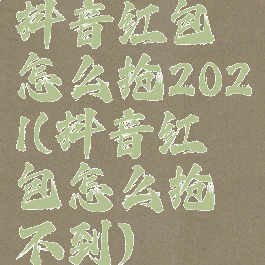 抖音红包
怎么抢202
1(抖音红
包怎么抢
不到)